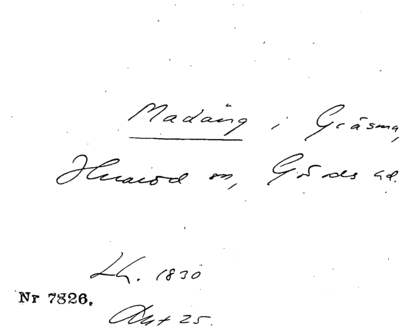 Madäng i Gråsma,
Huaröd sn, Gärds hd.
Lh. 1830
Nr 7826.
Akt 25.